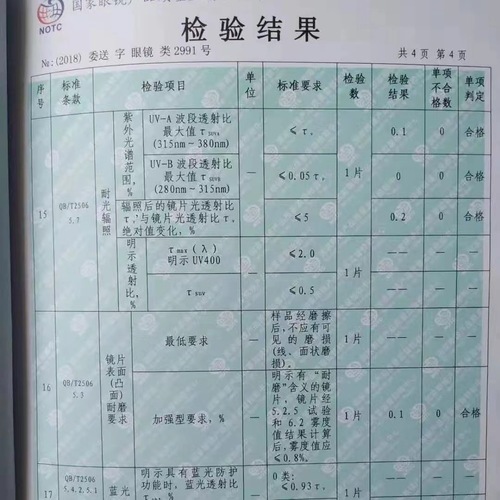 NOTC
国家眼镜
检验结果
№:(2018) 委送 字 眼镜 类 2991 号
共 4 页 第 4 页
序号 标准条款 检验项目 单位 标准要求 检验数 检验结果 单项不合格数 单项判定
15 QB/T2506 5.7 耐光辐照
紫外光谱范围,%
UV-A 波段透射比最大值 τsuva (315nm～380nm) — ≤τv 1片 0.1 0 合格
UV-B 波段透射比最大值 τsuvb (280nm～315nm) ≤0.05τv 0 0 合格
辐照后的镜片光透射比 τv'与镜片光透射比 τv 绝对值变化,% ≤5 0.2 0 合格
明示透射比,%
τmax(λ) 明示 UV400 — ≤2.0 1片 —— — ——
τsuv ≤0.5 —— — ——
16 QB/T2506 5.5 镜片表面(凸面)耐磨要求
最低要求 — 样品经磨擦后,不应有可见的磨损(线、面状磨损)。 1片 —— — ——
加强型要求,% — 明示有“耐磨”含义的镜片,镜片经 5.2.5 试验和 6.2 雾度值结果计算后,雾度值应≤0.8%。 1片 0.1 0 合格
17 QB/T2506 5.4.2.5.1 蓝光
明示具有蓝光防护功能时,蓝光透射比
0 类:
≤0.93τ
1片